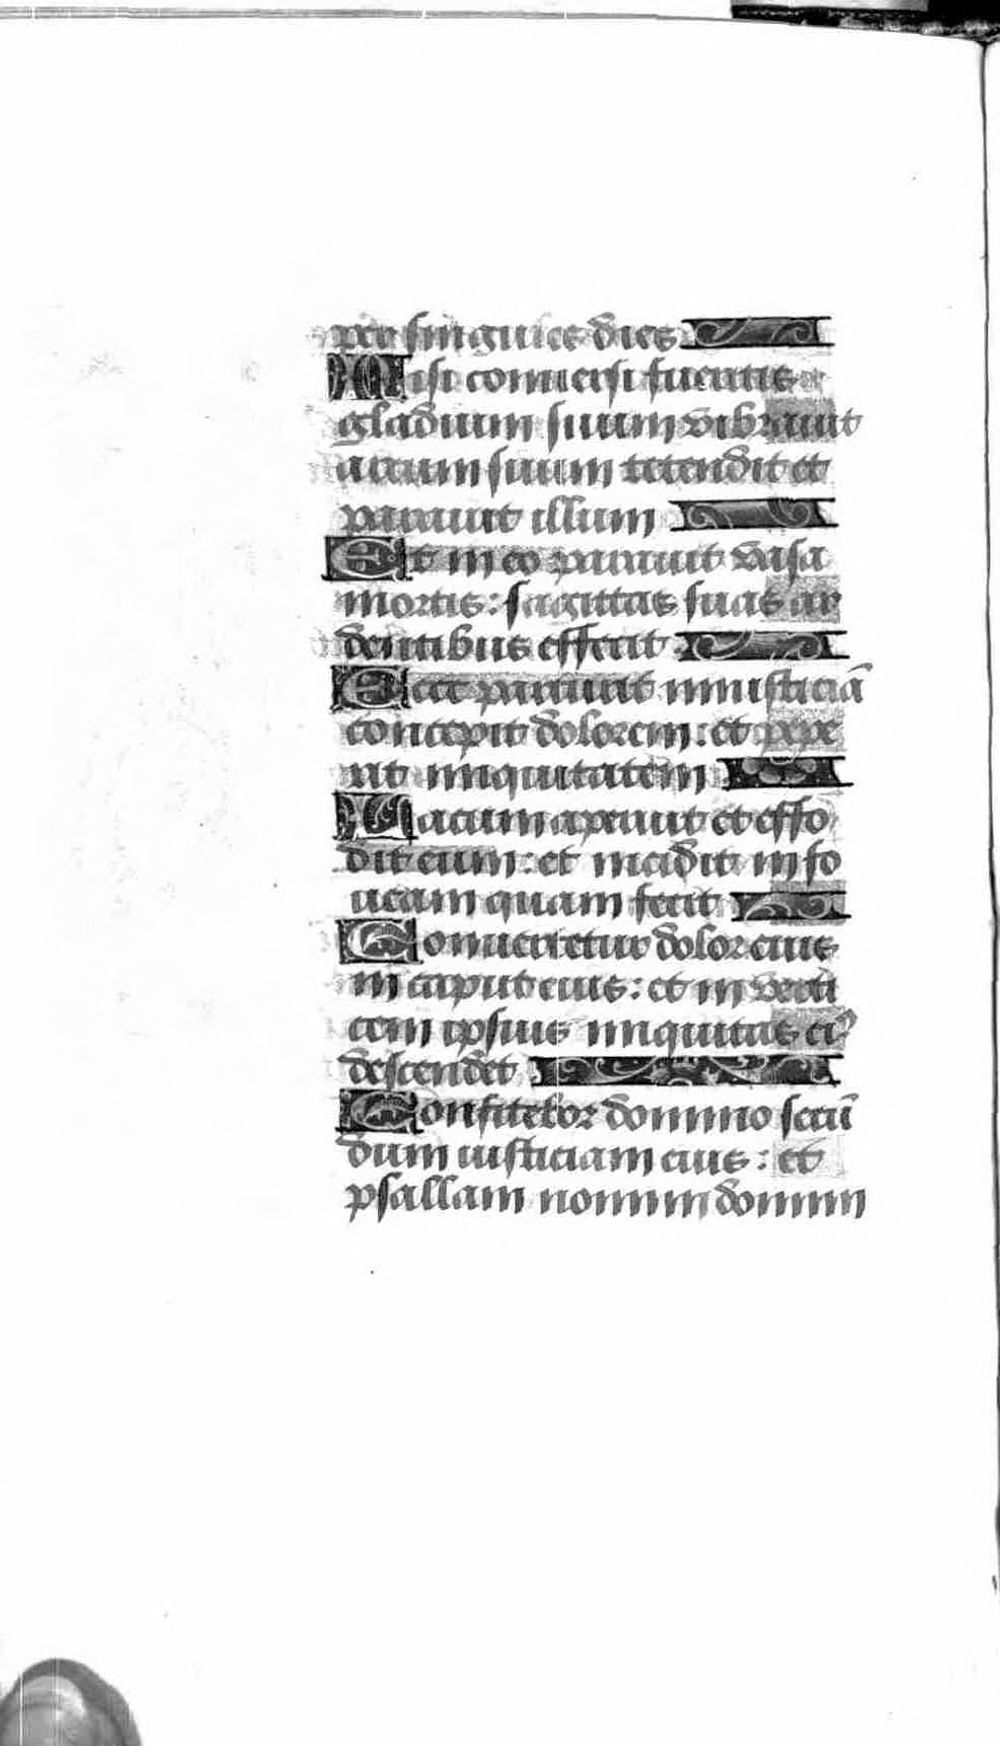 per singulos dies
Nisi conuersi fueritis
gladium suum vibrauit
arcum suum tetendit et
parauit illum
Et in eo parauit vasa
mortis: sagittas suas ar
dentibus effecit
Ecce parturiit iniusticiā
concepit dolorem: et pepe
rit iniquitatem
Lacum aperuit et effo
dit eum: et incidit in fo
ueam quam fecit
Conuertetur dolor eius
in caput eius: et in verti
cem ipsius iniquitas ei⁹
descendet
Confitebor domino secū
dum iusticiam eius: et
psallam nomini domini